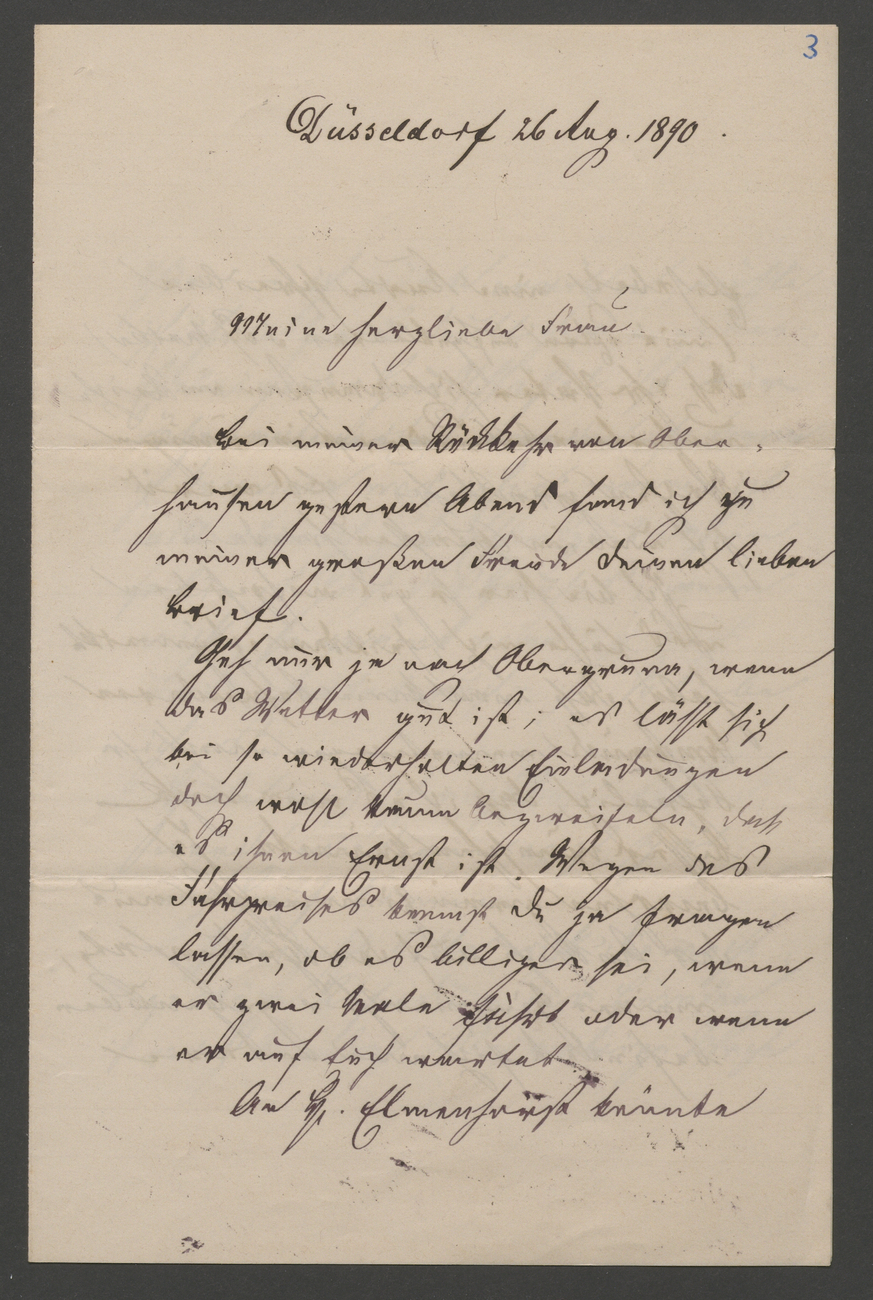 3
Düsseldorf 26 Aug. 1890.
Meine herzliebe Frau
Bei meiner Rückkehr von Ober-
hausen gestern Abend fand ich zu
meiner großen Freude Deinen lieben
Brief.
Geh nur ja nach Obergruna, wenn
das Wetter gut ist; es läßt sich
bei so wiederholten Einladungen
doch wohl kaum bezweifeln, daß
es ihnen Ernst ist. Wegen des
Fahrpreises kannst Du ja fragen
lassen, ob es billiger sei, wenn
er zwei Male fährt oder wenn
er auf Euch wartet
An H. Elmenhorst könnte